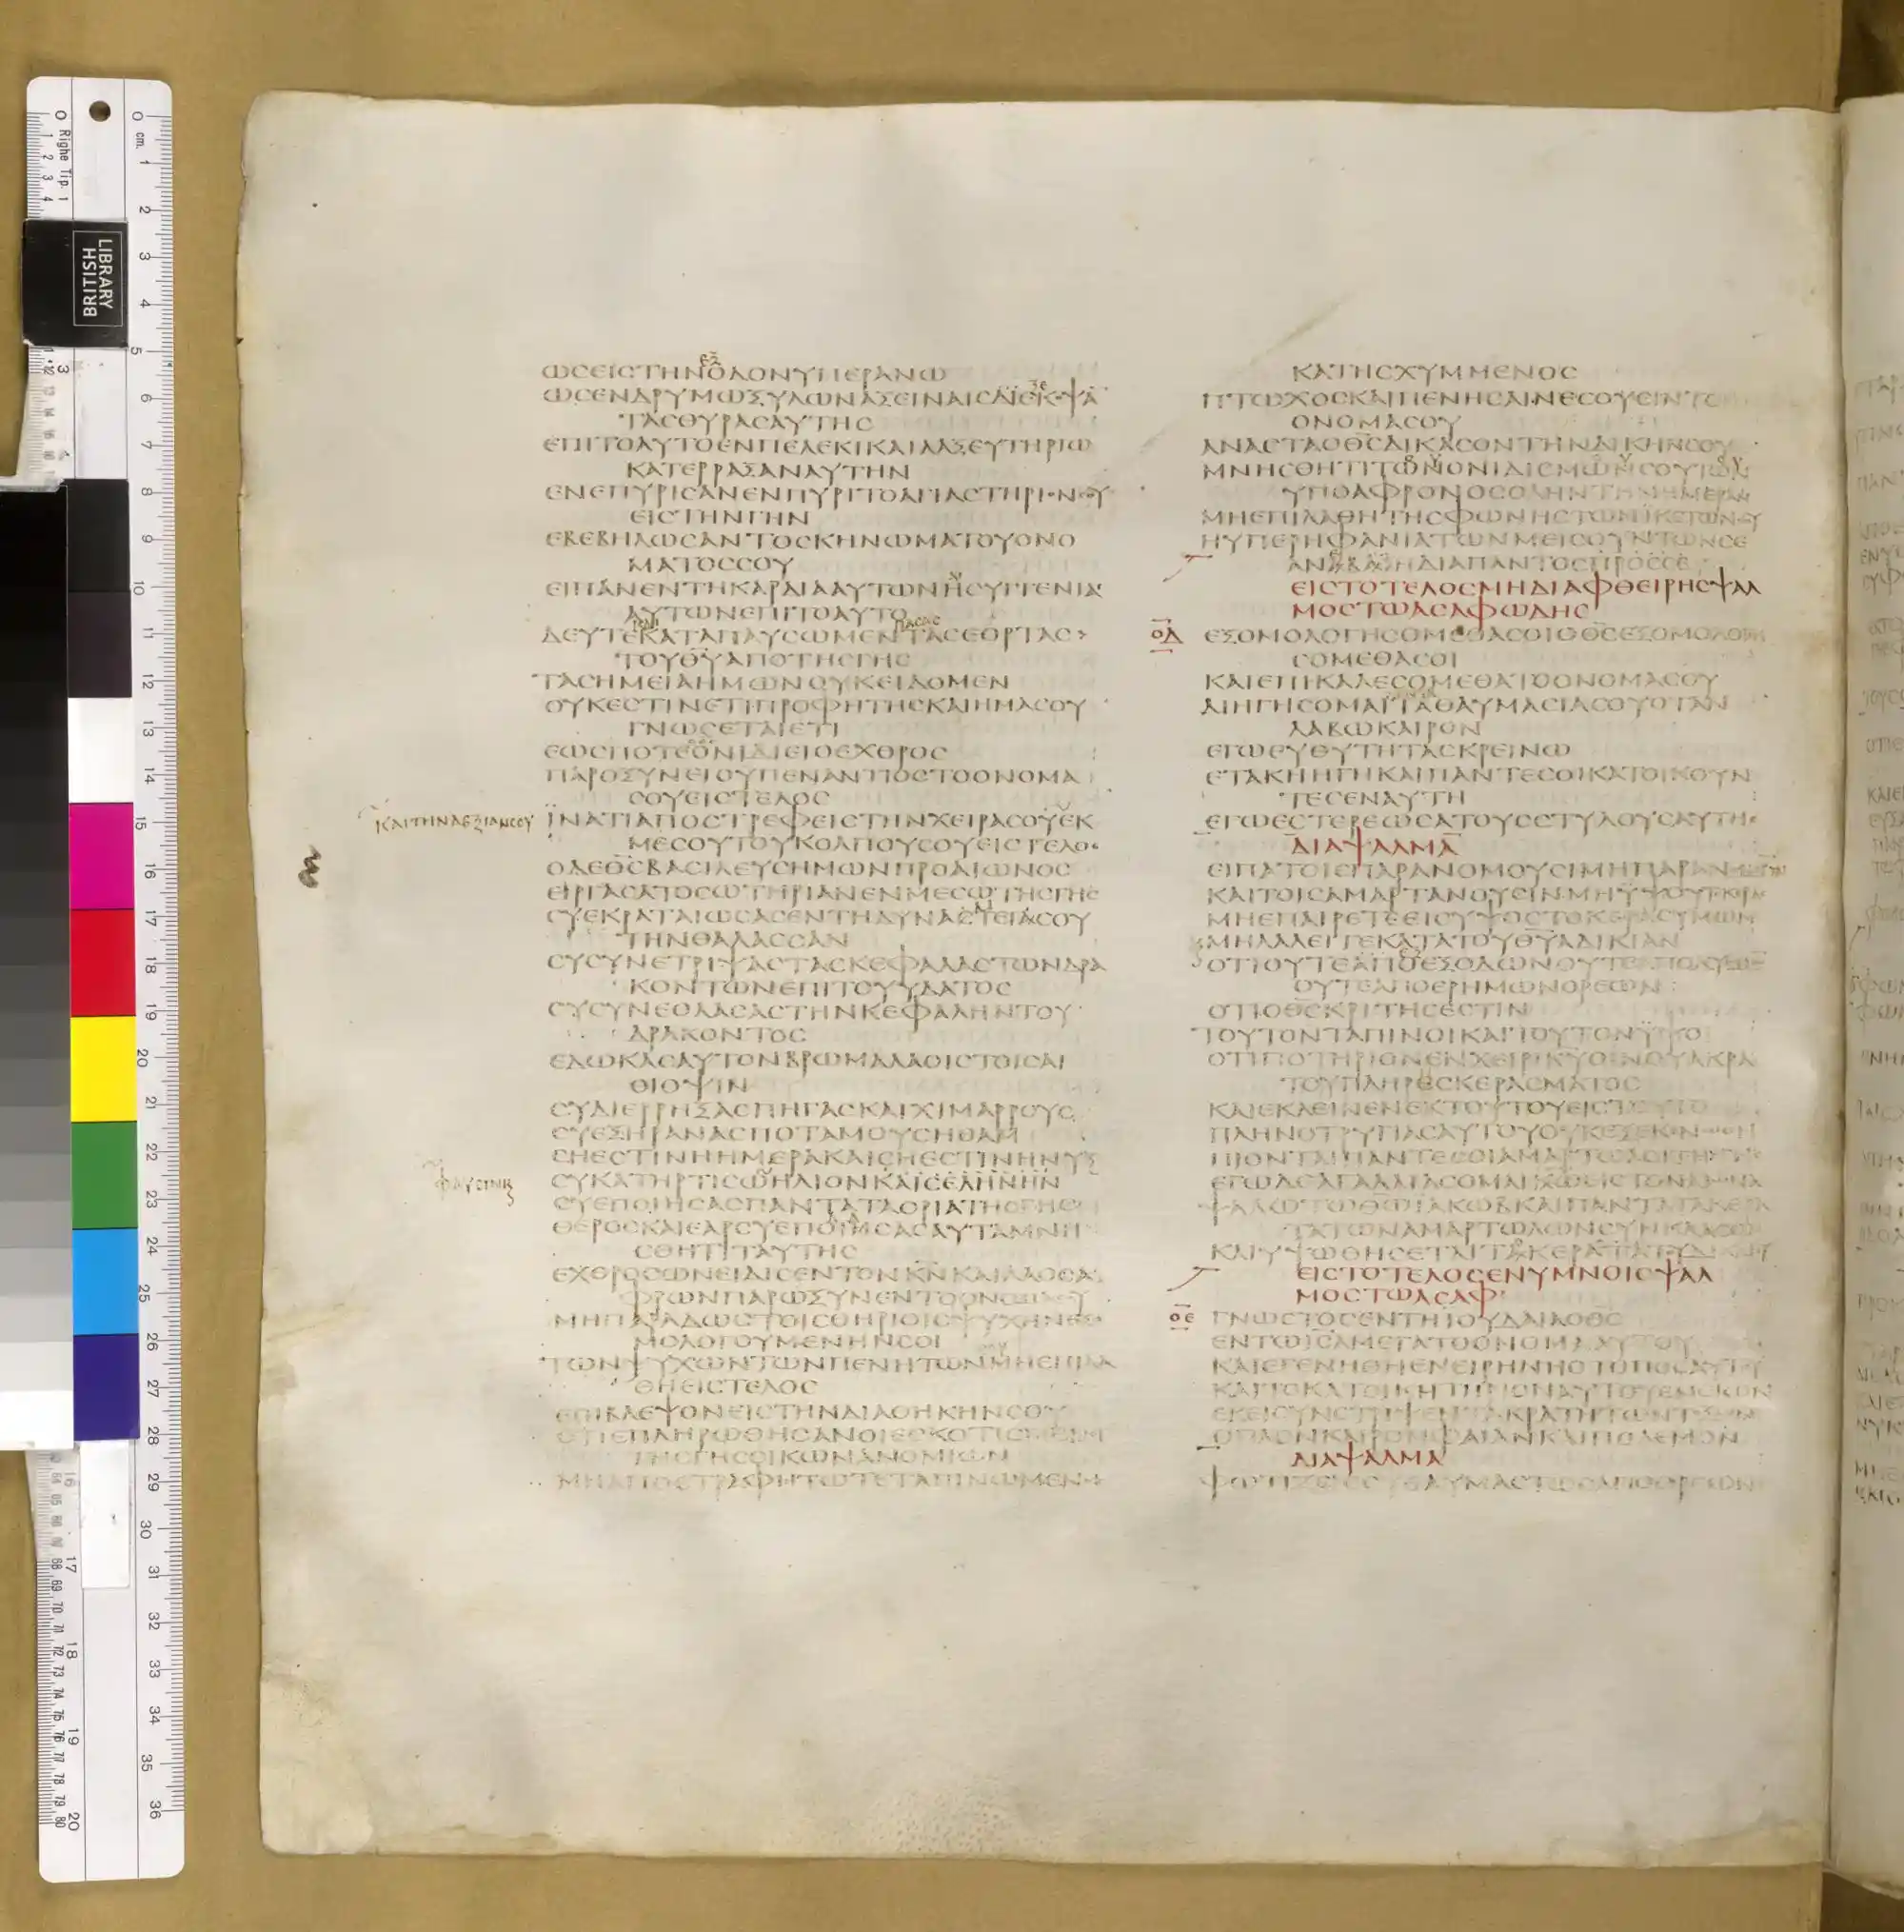 ΩϹΕΙϹΤΗΝΟΔΟΝΥΠΕΡΑΝΩ
ΩϹΕΝΔΡΥΜΩΞΥΛΩΝΑΞΕΙΝΑΙϹΔΙΕΚΟΨΑ
ΤΑϹΘΥΡΑϹΑΥΤΗϹ
ΕΠΙΤΟΑΥΤΟΕΝΠΕΛΕΚΙΚΑΙΛΑΞΕΥΤΗΡΙΩ
ΚΑΤΕΡΡΑΞΑΝΑΥΤΗΝ
ΕΝΕΠΥΡΙϹΑΝΕΝΠΥΡΙΤΟΑΓΙΑϹΤΗΡΙΟΝϹΟΥ
ΕΙϹΤΗΝΓΗΝ
ΕΒΕΒΗΛΩϹΑΝΤΟϹΚΗΝΩΜΑΤΟΥΟΝΟ
ΜΑΤΟϹϹΟΥ
ΕΙΠΑΝΕΝΤΗΚΑΡΔΙΑΑΥΤΩΝΗϹΥΓΓΕΝΙΑ
ΑΥΤΩΝΕΠΙΤΟΑΥΤΟ
ΠΑϹΑϹ
ΔΕΥΤΕΚΑΤΑΠΑΥϹΩΜΕΝΤΑϹΕΟΡΤΑϹ
ΤΟΥΘΥΑΠΟΤΗϹΓΗϹ
ΤΑϹΗΜΕΙΑΗΜΩΝΟΥΚΕΙΔΟΜΕΝ
ΟΥΚΕϹΤΙΝΕΤΙΠΡΟΦΗΤΗϹΚΑΙΗΜΑϹΟΥ
ΓΝΩϹΕΤΑΙΕΤΙ
ΕΩϹΠΟΤΕΟΝΙΔΙΕΙΟΕΧΘΡΟϹ
ΠΑΡΟΞΥΝΕΙΟΥΠΕΝΑΝΤΙΟϹΤΟΟΝΟΜΑ
ϹΟΥΕΙϹΤΕΛΟϹ
ΚΑΙΤΗΝΔΕΞΙΑΝϹΟΥ
ΪΝΑΤΙΑΠΟϹΤΡΕΦΕΙϹΤΗΝΧΕΙΡΑϹΟΥΕΚ
ΜΕϹΟΥΤΟΥΚΟΛΠΟΥϹΟΥΕΙϹΤΕΛΟϹ
ΟΔΕΘϹΒΑϹΙΛΕΥϹΗΜΩΝΠΡΟΑΙΩΝΟϹ
ΕΙΡΓΑϹΑΤΟϹΩΤΗΡΙΑΝΕΝΜΕϹΩΤΗϹΓΗϹ
ϹΥΕΚΡΑΤΑΙΩϹΑϹΕΝΤΗΔΥΝΑϹΤΕΙΑϹΟΥ
ΤΗΝΘΑΛΑϹϹΑΝ
ϹΥϹΥΝΕΤΡΙΨΑϹΤΑϹΚΕΦΑΛΑϹΤΩΝΔΡΑ
ΚΟΝΤΩΝΕΠΙΤΟΥΥΔΑΤΟϹ
ϹΥϹΥΝΕΘΛΑϹΑϹΤΗΝΚΕΦΑΛΗΝΤΟΥ
ΔΡΑΚΟΝΤΟϹ
ΕΔΩΚΑϹΑΥΤΟΝΒΡΩΜΑΛΑΟΙϹΤΟΙϹΑΙ
ΘΙΟΨΙΝ
ϹΥΔΙΕΡΡΗΞΑϹΠΗΓΑϹΚΑΙΧΙΜΑΡΡΟΥϹ
ϹΥΕΞΗΡΑΝΑϹΠΟΤΑΜΟΥϹΗΘΑΜ
ϹΗΕϹΤΙΝΗΗΜΕΡΑΚΑΙϹΗΕϹΤΙΝΗΝΥΞ
ϹΥΚΑΤΗΡΤΙϹΩΗΛΙΟΝΚΑΙϹΕΛΗΝΗΝ
ϹΥΕΠΟΙΗϹΑϹΠΑΝΤΑΤΑΟΡΙΑΤΗϹΓΗϹ
ΘΕΡΟϹΚΑΙΕΑΡϹΥΕΠΟΙΗϹΑϹΑΥΤΑΜΝΗ
ϹΘΗΤΙΤΑΥΤΗϹ
ΕΧΘΡΟϹΩΝΕΙΔΙϹΕΝΤΟΝΚΝΚΑΙΛΑΟϹΑ
ΦΡΩΝΠΑΡΩΞΥΝΕΝΤΟΟΝΟΜΑϹΟΥ
ΜΗΠΑΡΑΔΩϹΤΟΙϹΘΗΡΙΟΙϹΨΥΧΗΝΕΞΟ
ΜΟΛΟΓΟΥΜΕΝΗΝϹΟΙ
ΤΩΝΨΥΧΩΝΤΩΝΠΕΝΗΤΩΝΜΗΕΠΙΛΑ
ΘΗΕΙϹΤΕΛΟϹ
ΕΠΙΒΛΕΨΟΝΕΙϹΤΗΝΔΙΑΘΗΚΗΝϹΟΥ
ΟΤΙΕΠΛΗΡΩΘΗϹΑΝΟΙΕϹΚΟΤΙϹΜΕΝΟΙ
ΤΗϹΓΗϹΟΙΚΩΝΑΝΟΜΙΩΝ
ΜΗΑΠΟϹΤΡΑΦΗΤΩΤΕΤΑΠΙΝΩΜΕΝΟϹ
ΚΑΤΗϹΧΥΜΜΕΝΟϹ
ΠΤΩΧΟϹΚΑΙΠΕΝΗϹΑΙΝΕϹΟΥϹΙΝΤΟ
ΟΝΟΜΑϹΟΥ
ΑΝΑϹΤΑΟΘϹΔΙΚΑϹΟΝΤΗΝΔΙΚΗΝϹΟΥ
ΜΝΗϹΘΗΤΙΤΩΝΟΝΙΔΙϹΜΩΝϹΟΥΤΩΝ
ΥΠΟΑΦΡΟΝΟϹΟΛΗΝΤΗΝΗΜΕΡΑΝ
ΜΗΕΠΙΛΑΘΗΤΗϹΦΩΝΗϹΤΩΝΪΚΕΤΩΝϹΟΥ
ΗΥΠΕΡΗΦΑΝΙΑΤΩΝΜΕΙϹΟΥΝΤΩΝϹΕ
ΑΝΑΒΑΙΗΔΙΑΠΑΝΤΟϹΠΡΟϹϹΕ
ΕΙϹΤΟΤΕΛΟϹΜΗΔΙΑΦΘΕΙΡΗϹΨΑΛ
ΜΟϹΤΩΑϹΑΦΩΔΗϹ
ΟΔ ΕΞΟΜΟΛΟΓΗϹΟΜΕΘΑϹΟΙΟΘϹΕΞΟΜΟΛΟΓΗ
ϹΟΜΕΘΑϹΟΙ
ΚΑΙΕΠΙΚΑΛΕϹΟΜΕΘΑΤΟΟΝΟΜΑϹΟΥ
ΔΙΗΓΗϹΟΜΑΙΤΑΘΑΥΜΑϹΙΑϹΟΥΟΤΑΝ
ΛΑΒΩΚΑΙΡΟΝ
ΕΓΩΕΥΘΥΤΗΤΑϹΚΡΕΙΝΩ
ΕΤΑΚΗΗΓΗΚΑΙΠΑΝΤΕϹΟΙΚΑΤΟΙΚΟΥΝ
ΤΕϹΕΝΑΥΤΗ
ΕΓΩΕϹΤΕΡΕΩϹΑΤΟΥϹϹΤΥΛΟΥϹΑΥΤΗϹ
ΔΙΑΨΑΛΜΑ
ΕΙΠΑΤΟΙϹΠΑΡΑΝΟΜΟΥϹΙΜΗΠΑΡΑΝΟΜΕΙΝ
ΚΑΙΤΟΙϹΑΜΑΡΤΑΝΟΥϹΙΝΜΗΥΨΟΥΤΕΚΕΡΑϹ
ΜΗΕΠΑΙΡΕΤΕΕΙϹΥΨΟϹΤΟΚΕΡΑϹΥΜΩΝ
ΜΗΛΑΛΕΙΤΕΚΑΤΑΤΟΥΘΥΑΔΙΚΙΑΝ
ΟΤΙΟΥΤΕΑΠΟΕΞΟΔΩΝΟΥΤΕΑΠΟΔΥϹΜΩ
ΟΥΤΕΑΠΟΕΡΗΜΩΝΟΡΕΩΝ
ΟΤΙΟΘϹΚΡΙΤΗϹΕϹΤΙΝ
ΤΟΥΤΟΝΤΑΠΙΝΟΙΚΑΙΤΟΥΤΟΝΥΨΟΙ
ΟΤΙΠΟΤΗΡΙΟΝΕΝΧΕΙΡΙΚΥΟΙΝΟΥΑΚΡΑ
ΤΟΥΠΛΗΡΕϹΚΕΡΑϹΜΑΤΟϹ
ΚΑΙΕΚΛΕΙΝΕΝΕΚΤΟΥΤΟΥΕΙϹΤΟΥΤΟ
ΠΛΗΝΟΤΡΥΓΙΑϹΑΥΤΟΥΟΥΚΕΞΕΚΕΝΩΘΗ
ΠΙΟΝΤΑΙΠΑΝΤΕϹΟΙΑΜΑΡΤΩΛΟΙΤΗϹΓΗϹ
ΕΓΩΔΕΑΓΑΛΛΙΑϹΟΜΑΙΕΙϹΤΟΝΑΙΩΝΑ
ΨΑΛΩΤΩΘΩΙΑΚΩΒΚΑΙΠΑΝΤΑΤΑΚΕΡΑ
ΤΑΤΩΝΑΜΑΡΤΩΛΩΝϹΥΝΚΛΑϹΩ
ΚΑΙΥΨΩΘΗϹΕΤΑΙΤΑΚΕΡΑΤΑΤΟΥΔΙΚΑΙΟΥ
ΕΙϹΤΟΤΕΛΟϹΕΝΥΜΝΟΙϹΨΑΛ
ΜΟϹΤΩΑϹΑΦ
ΟΕ ΓΝΩϹΤΟϹΕΝΤΗΙΟΥΔΑΙΑΟΘϹ
ΕΝΤΩΙϹΛΜΕΓΑΤΟΟΝΟΜΑΑΥΤΟΥ
ΚΑΙΕΓΕΝΗΘΗΕΝΕΙΡΗΝΗΟΤΟΠΟϹΑΥΤΟΥ
ΚΑΙΤΟΚΑΤΟΙΚΗΤΗΡΙΟΝΑΥΤΟΥΕΝϹΙΩΝ
ΕΚΕΙϹΥΝΕΤΡΙΨΕΝΤΑΚΡΑΤΗΤΩΝΤΟΞΩΝ
ΟΠΛΟΝΚΑΙΡΟΜΦΑΙΑΝΚΑΙΠΟΛΕΜΟΝ
ΔΙΑΨΑΛΜΑ
ΦΩΤΙΖΕΙϹϹΥΘΑΥΜΑϹΤΩϹΑΠΟΟΡΕΩΝ
LIBRARY
BRITISH
Righe Tip. 1
cm.